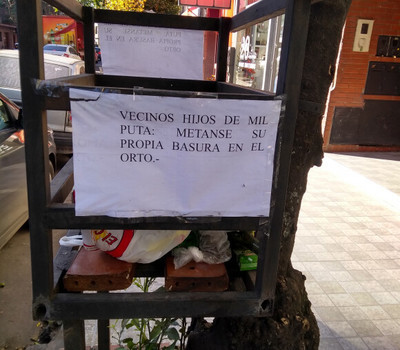 VECINOS HIJOS DE MIL
PUTA: METANSE SU
PROPIA BASURA EN EL
ORTO.-